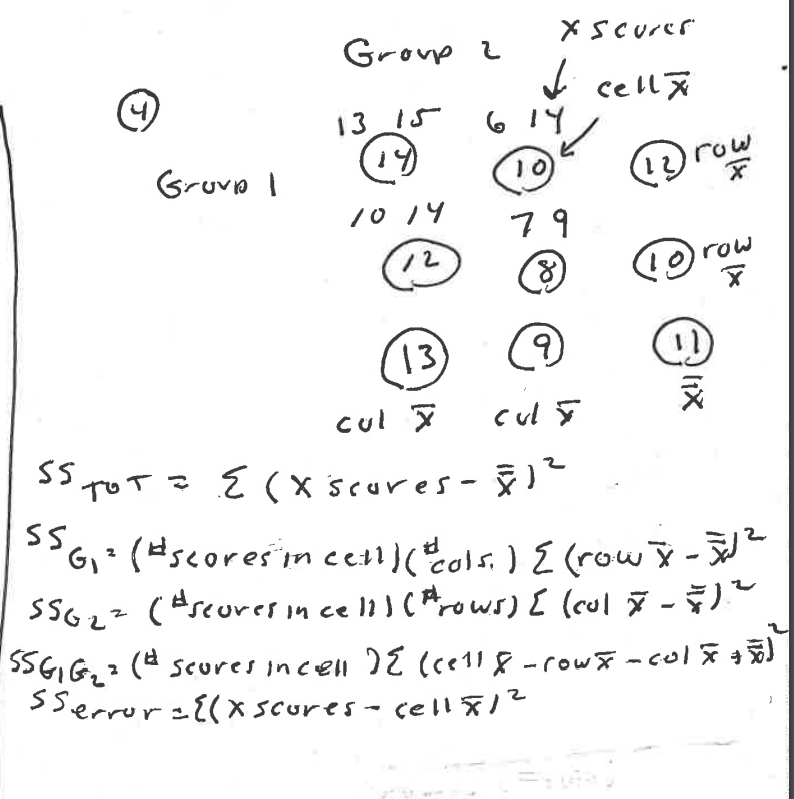 Group 2 X scores
④ cell x̄
13 15 6 14
Group 1 14 10 12 row x̄
10 14 7 9
12 8 10 row x̄
13 9 11
col x̄ col x̄ x̿
SS TOT = Σ (X scores - x̿)²
SS G₁ = (# scores in cell)(# cols.) Σ (row x̄ - x̿)²
SS G₂ = (# scores in cell)(# rows) Σ (col x̄ - x̿)²
SS G₁G₂ = (# scores in cell) Σ (cell x̄ - row x̄ - col x̄ + x̿)²
SS error = Σ(X scores - cell x̄)²